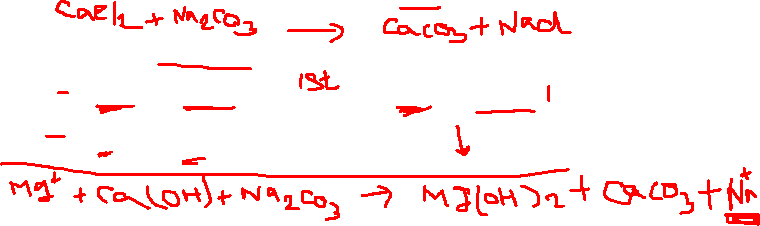 CaCl₂ + Na₂CO₃ → CaCO₃ + NaCl
1st
Mg⁺ + Ca(OH) + Na₂CO₃ → Mg(OH)₂ + CaCO₃ + Na⁺